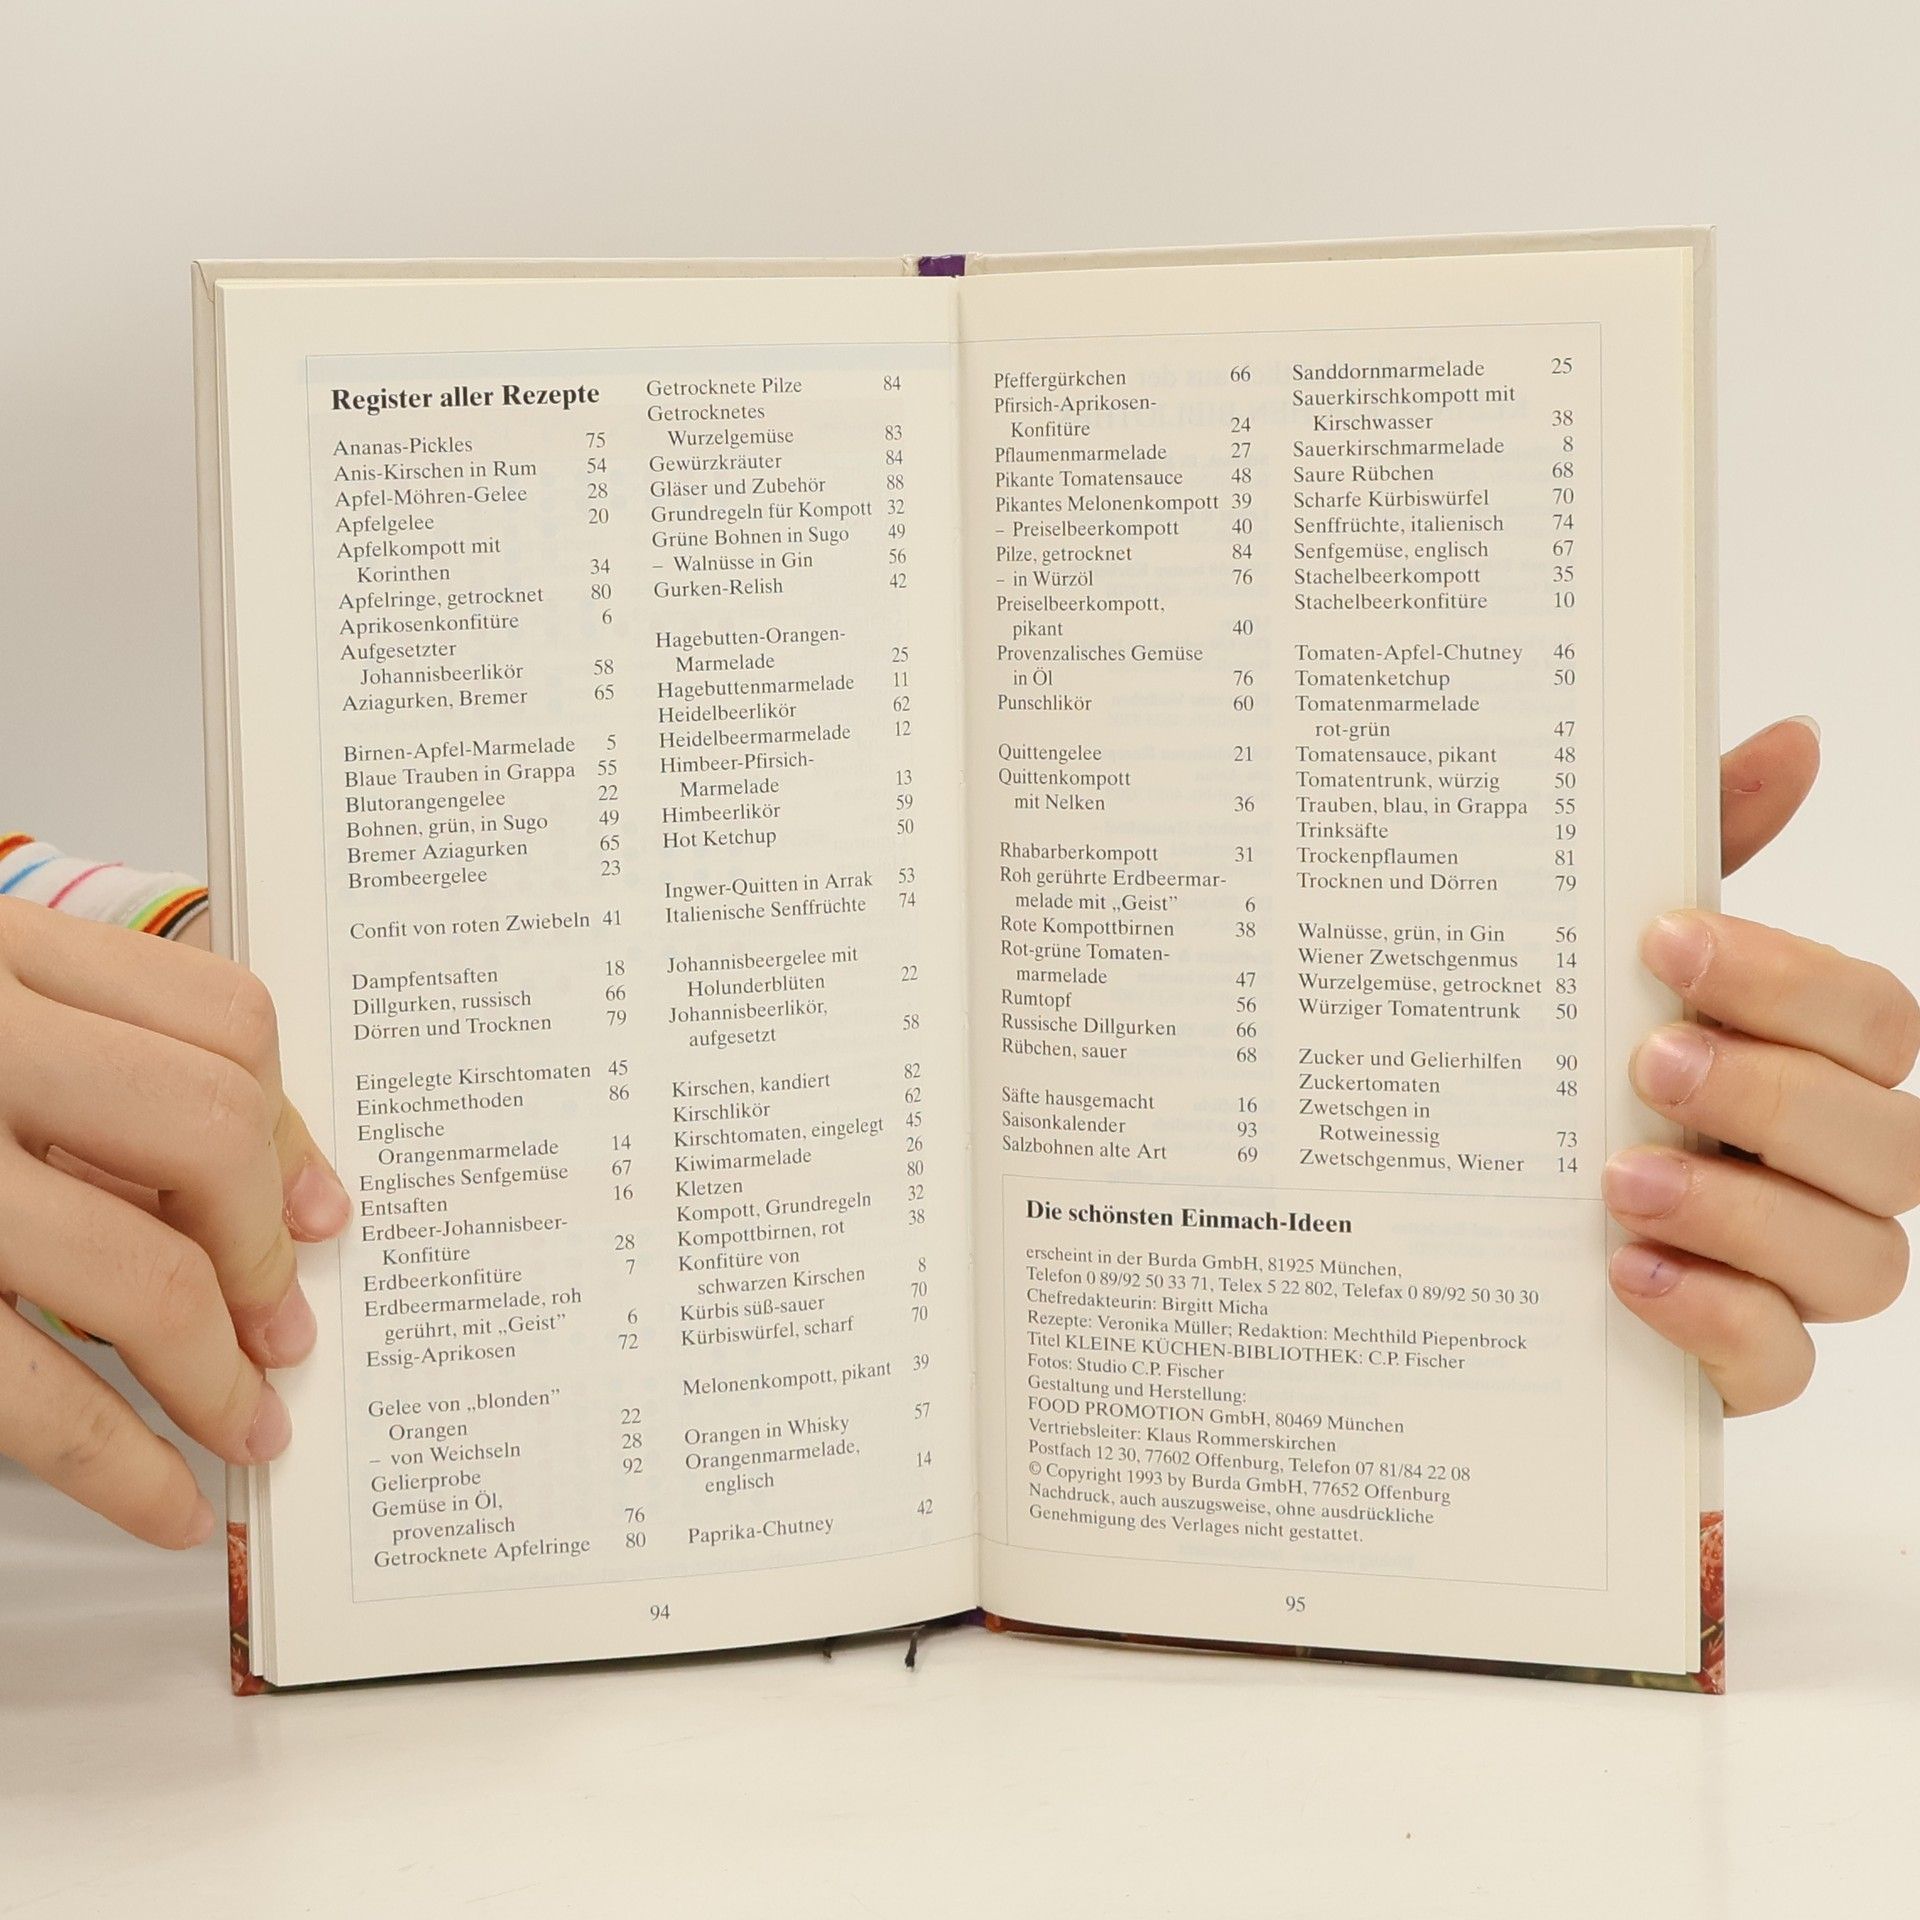 Register aller Rezepte
Ananas-Pickles 75
Anis-Kirschen in Rum 54
Apfel-Möhren-Gelee 28
Apfelgelee 20
Apfelkompott mit
Korinthen 34
Apfelringe, getrocknet 80
Aprikosenkonfitüre 6
Aufgesetzter
Johannisbeerlikör 58
Aziagurken, Bremer 65
Birnen-Apfel-Marmelade 5
Blaue Trauben in Grappa 55
Blutorangengelee 22
Bohnen, grün, in Sugo 49
Bremer Aziagurken 65
Brombeergelee 23
Confit von roten Zwiebeln 41
Dampfentsaften 18
Dillgurken, russisch 66
Dörren und Trocknen 79
Eingelegte Kirschtomaten 45
Einkochmethoden 86
Englische
Orangenmarmelade 14
Englisches Senfgemüse 67
Entsaften 16
Erdbeer-Johannisbeer-
Konfitüre 28
Erdbeerkonfitüre 7
Erdbeermarmelade, roh
gerührt, mit „Geist” 6
Essig-Aprikosen 72
Gelee von „blonden”
Orangen 22
– von Weichseln 28
Gelierprobe 92
Gemüse in Öl,
provenzalisch 76
Getrocknete Apfelringe 80
Getrocknete Pilze 84
Getrocknetes
Wurzelgemüse 83
Gewürzkräuter 84
Gläser und Zubehör 88
Grundregeln für Kompott 32
Grüne Bohnen in Sugo 49
– Walnüsse in Gin 56
Gurken-Relish 42
Hagebutten-Orangen-
Marmelade 25
Hagebuttenmarmelade 11
Heidelbeerlikör 62
Heidelbeermarmelade 12
Himbeer-Pfirsich-
Marmelade 13
Himbeerlikör 59
Hot Ketchup 50
Ingwer-Quitten in Arrak 53
Italienische Senffrüchte 74
Johannisbeergelee mit
Holunderblüten 22
Johannisbeerlikör,
aufgesetzt 58
Kirschen, kandiert 82
Kirschlikör 62
Kirschtomaten, eingelegt 45
Kiwimarmelade 26
Kletzen 80
Kompott, Grundregeln 32
Kompottbirnen, rot 38
Konfitüre von
schwarzen Kirschen 8
Kürbis süß-sauer 70
Kürbiswürfel, scharf 70
Melonenkompott, pikant 39
Orangen in Whisky 57
Orangenmarmelade,
englisch 14
Paprika-Chutney 42
94
Pfeffergürkchen 66
Pfirsich-Aprikosen-
Konfitüre 24
Pflaumenmarmelade 27
Pikante Tomatensauce 48
Pikantes Melonenkompott 39
– Preiselbeerkompott 40
Pilze, getrocknet 84
– in Würzöl 76
Preiselbeerkompott,
pikant 40
Provenzalisches Gemüse
in Öl 76
Punschlikör 60
Quittengelee 21
Quittenkompott
mit Nelken 36
Rhabarberkompott 31
Roh gerührte Erdbeermar-
melade mit „Geist” 6
Rote Kompottbirnen 38
Rot-grüne Tomaten-
marmelade 47
Rumtopf 56
Russische Dillgurken 66
Rübchen, sauer 68
Säfte hausgemacht 16
Saisonkalender 93
Salzbohnen alte Art 69
Sanddornmarmelade 25
Sauerkirschkompott mit
Kirschwasser 38
Sauerkirschmarmelade 8
Saure Rübchen 68
Scharfe Kürbiswürfel 70
Senffrüchte, italienisch 74
Senfgemüse, englisch 67
Stachelbeerkompott 35
Stachelbeerkonfitüre 10
Tomaten-Apfel-Chutney 46
Tomatenketchup 50
Tomatenmarmelade
rot-grün 47
Tomatensauce, pikant 48
Tomatentrunk, würzig 50
Trauben, blau, in Grappa 55
Trinksäfte 19
Trockenpflaumen 81
Trocknen und Dörren 79
Walnüsse, grün, in Gin 56
Wiener Zwetschgenmus 14
Wurzelgemüse, getrocknet 83
Würziger Tomatentrunk 50
Zucker und Gelierhilfen 90
Zuckertomaten 48
Zwetschgen in
Rotweinessig 73
Zwetschgenmus, Wiener 14
Die schönsten Einmach-Ideen
erscheint in der Burda GmbH, 81925 München,
Telefon 0 89/92 50 33 71, Telex 5 22 802, Telefax 0 89/92 50 30 30
Chefredakteurin: Birgitt Micha
Rezepte: Veronika Müller; Redaktion: Mechthild Piepenbrock
Titel KLEINE KÜCHEN-BIBLIOTHEK: C.P. Fischer
Fotos: Studio C.P. Fischer
Gestaltung und Herstellung:
FOOD PROMOTION GmbH, 80469 München
Vertriebsleiter: Klaus Rommerskirchen
Postfach 12 30, 77602 Offenburg, Telefon 07 81/84 22 08
© Copyright 1993 by Burda GmbH, 77652 Offenburg
Nachdruck, auch auszugsweise, ohne ausdrückliche
Genehmigung des Verlages nicht gestattet.
95